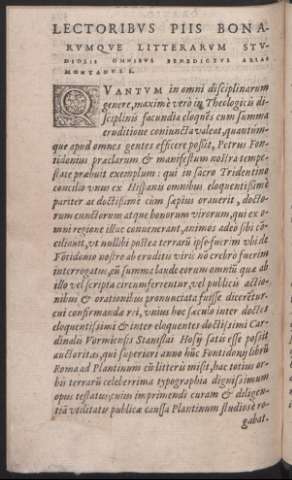 LECTORIBVS PIIS BONA-
RVMQVE LITTERARVM STV-
DIOSIS OMNIBVS BENEDICTVS ARIAS
MONTANVS S.
QVANTVM in omni disciplinarum
genere, maximè verò in Theologicis di-
sciplinis facundia eloquẽs cum summa
eruditione coniuncta valeat, quantúm-
que apud omnes gentes efficere possit, Petrus Fon-
tidonius praeclarum & manifestum nostra tempe-
state praebuit exemplum: qui in sacro Tridentino
concilio vnus ex Hispanis omnibus eloquentissimè
pariter ac doctissimè cùm saepius orauerit, docto-
rum cunctorum atque bonorum virorum, qui ex o-
mni regione illuc conuenerant, animos adeò sibi cõ-
ciliauit, vt nullibi postea terrarũ ipse fuerim vbi de
Fõtidonio nostro ab eruditis viris nõ crebrò fuerim
interrogatus, cũ summa laude eorum omniũ quae ab
illo vel scripta circumferrentur, vel publicis actio-
nibus & orationibus pronunctata fuisse dicerẽtur.
cui confirmanda rei, vnius hoc saeculo inter doctos
eloquentissimi & inter eloquentes doctissimi Car-
dinalis Vormiensis Stanislai Hosij satis esse possit
auctoritas, qui superiori anno hũc Fontidonij librũ
Roma ad Plantinum cũ litteris misit, hac totius or-
bis terrarũ celeberrima typographia dignissimum
opus testatus; cuius imprimendi curam & diligen-
tiã vtilitatis publicae caussa Plantinum studiosè ro-
gabat.